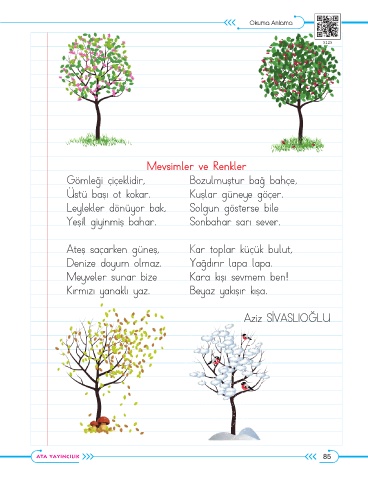 Okuma Anlama
Mevsimler ve Renkler
Gömleği çiçeklidir,
Üstü başı ot kokar.
Leylekler dönüyor bak,
Yeşil giyinmiş bahar.
Ateş saçarken güneş,
Denize doyum olmaz.
Meyveler sunar bize
Kırmızı yanaklı yaz.
Bozulmuştur bağ bahçe,
Kuşlar güneye göçer.
Solgun gösterse bile
Sonbahar sarı sever.
Kar toplar küçük bulut,
Yağdırır lapa lapa.
Kara kışı sevmem ben!
Beyaz yakışır kışa.
Aziz SİVASLIOĞLU
ATA YAYINCILIK
85